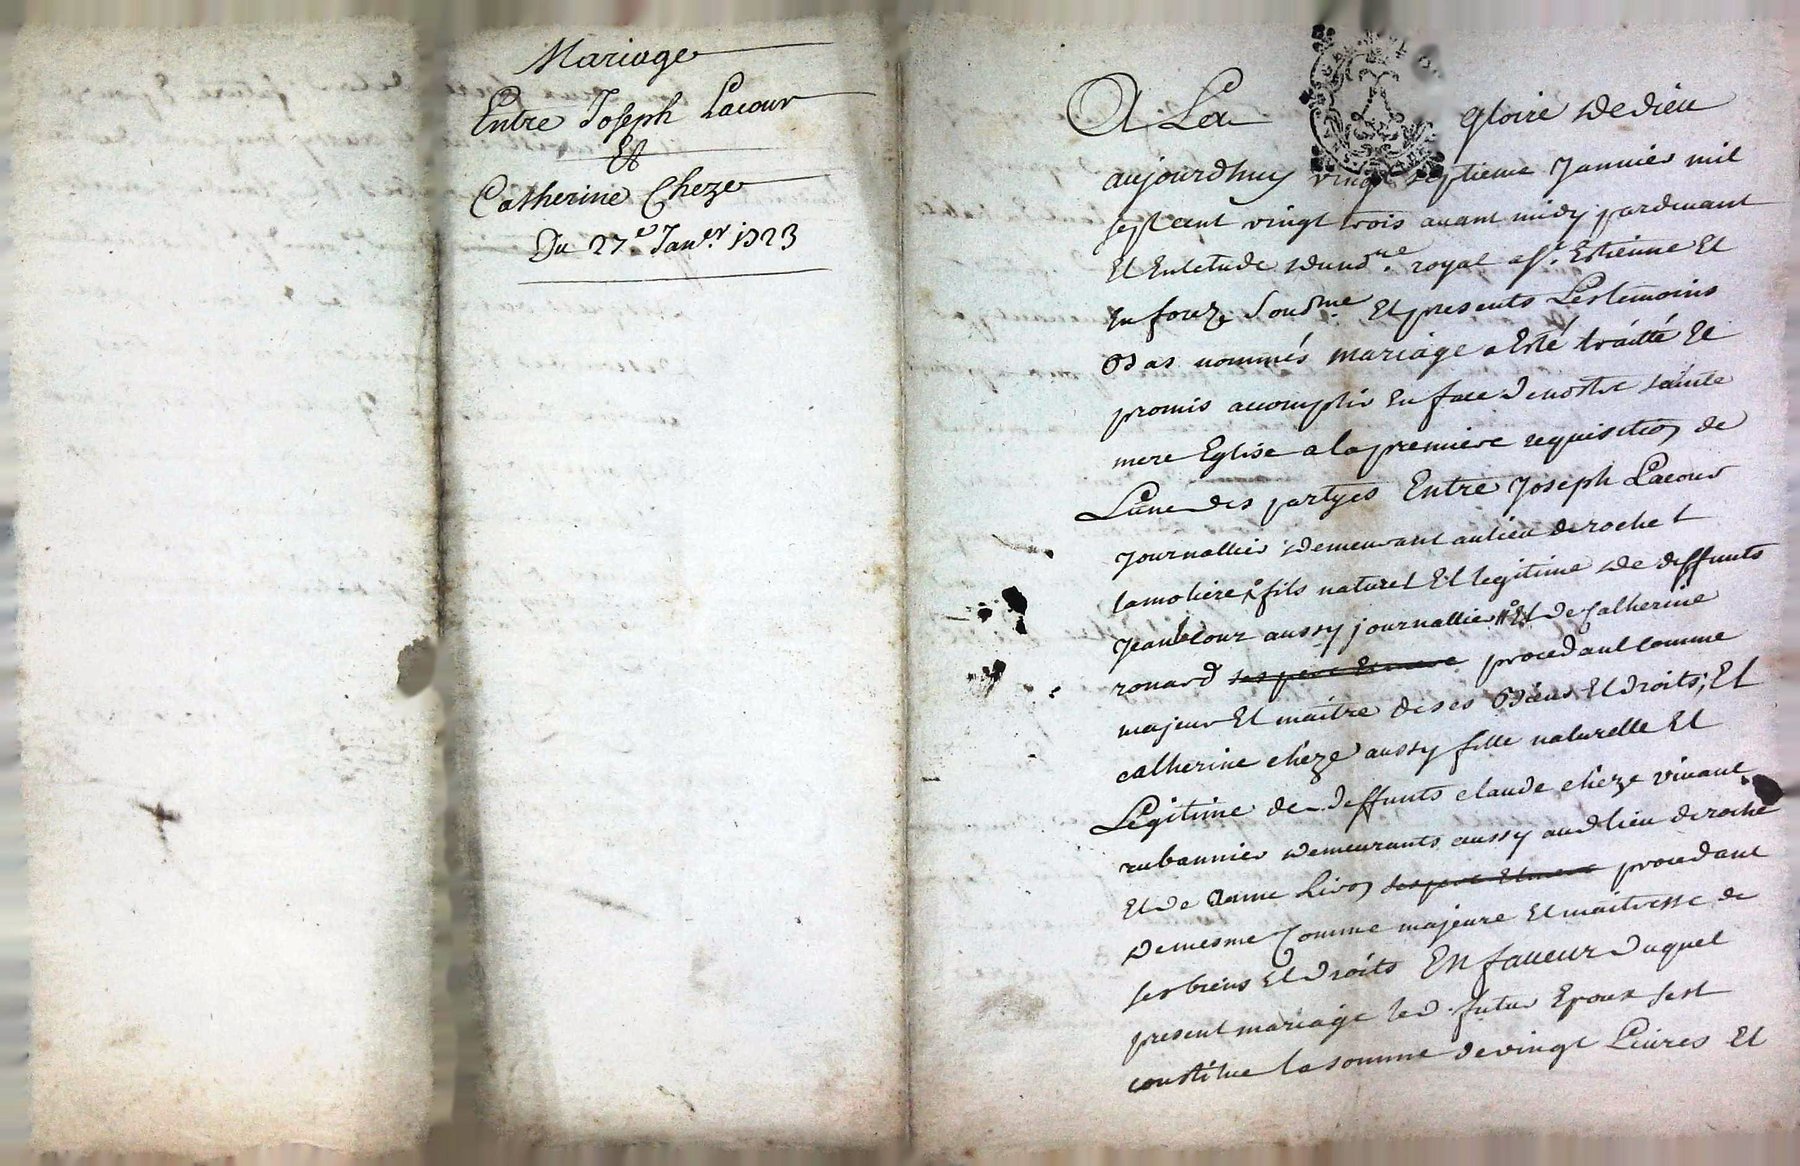 Mariage
Entre Joseph Lacour
Et
Catherine Cheze
Du 27e Janer. 1723
A La gloire de dieu
aujourdhuy vingt septieme Januier mil
sept cent vingt trois auant midy pardeuant
Et En letude du nore. royal a St. Estienne Et
En forez Et presents Les temoins
Bas nommés mariage a Esté traitté Et
promis accomplir En face de nostre sainte
mere Eglise a la premiere requisition de
Lune des partyes Entre Joseph Lacour
Journallier demeurant au lieu de roche t
lamoliere fils naturel Et legitime de deffunts
Jean lacour aussy journallier Et de Catherine
rouard ses pere Et mere procedant comme
majeur Et maitre de ses Biens Et droits; Et
catherine cheze aussy fille naturelle Et
Legitime de deffunts claude cheze viuant
rubannier demeurants aussy aud lieu de roche
Et de Anne Livon ses pere Et mere procedant
de mesme Comme majeure Et maitresse de
ses biens Et droits En faueur duquel
present mariage led. futur Epoux sest
constitue la somme de vingt Liures Et